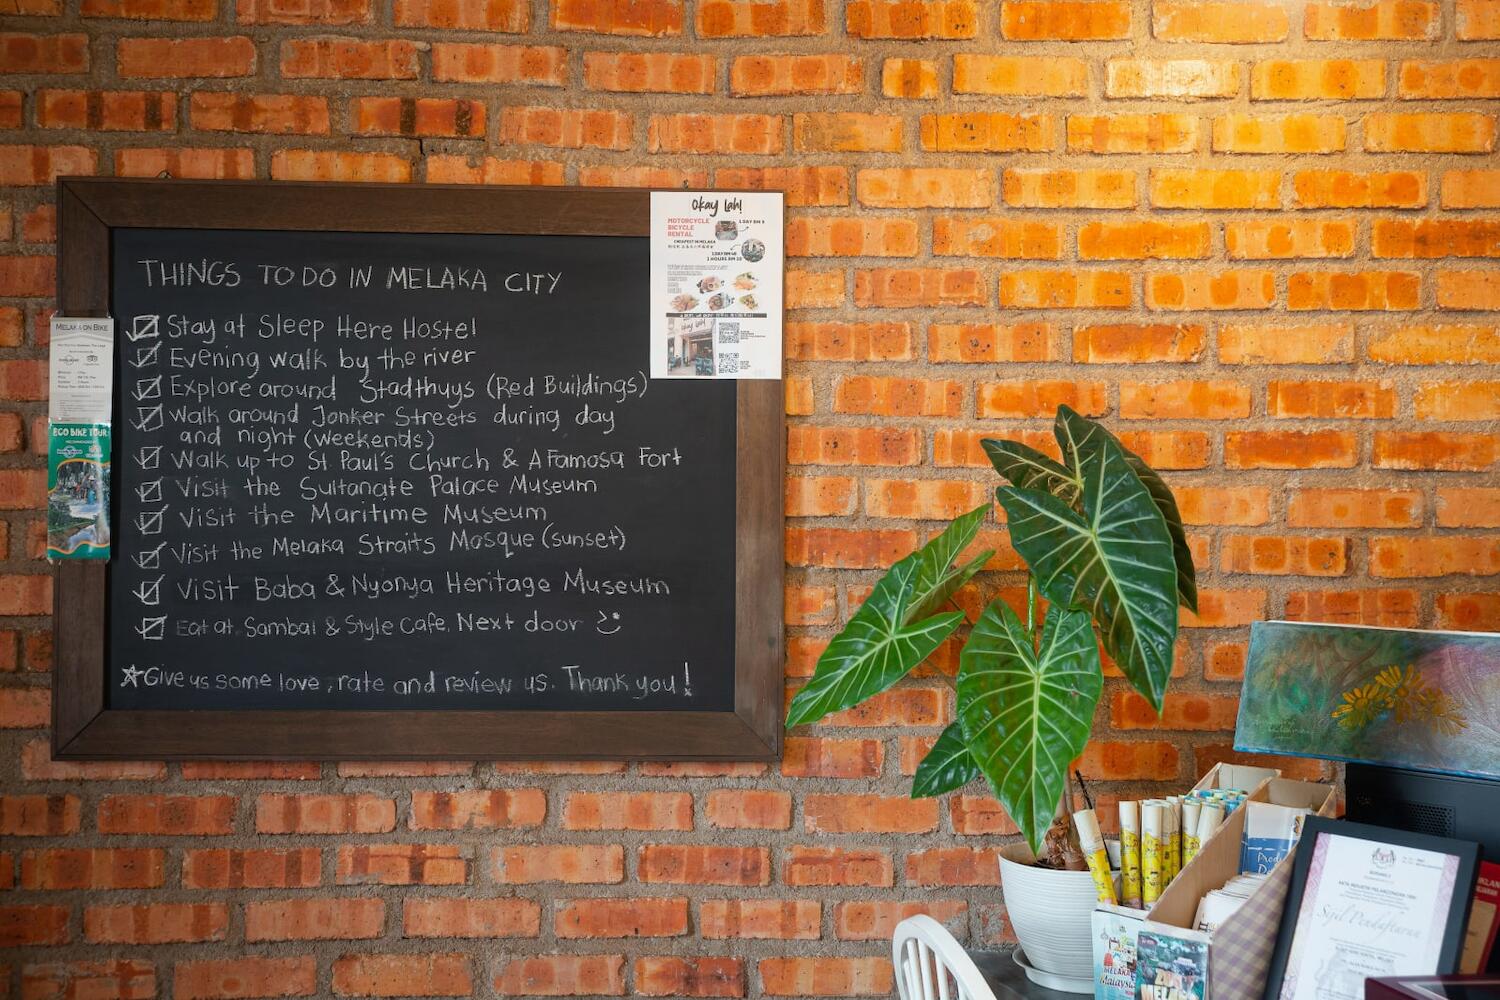 THINGS TO DO IN MELAKA CITY
Stay at Sleep Here Hostel
Evening walk by the river
Explore around Stadthuys (Red Buildings)
Walk around Jonker Streets during day
and night (weekends)
Walk up to St. Paul's Church & A Famosa Fort
Visit the Sultanate Palace Museum
Visit the Maritime Museum
Visit the Melaka Straits Mosque (sunset)
Visit Baba & Nyonya Heritage Museum
Eat at Sambal & Style Cafe, Next door
Give us some love, rate and review us. Thank you!
Okay Lah!
MOTORCYCLE
BICYCLE
RENTAL
CHEAPEST IN MELAKA
MELAKA ON BIKE
ECO BIKE TOUR
AKTA INDUSTRI PELANCONGAN 1992
Sijil Pendaftaran